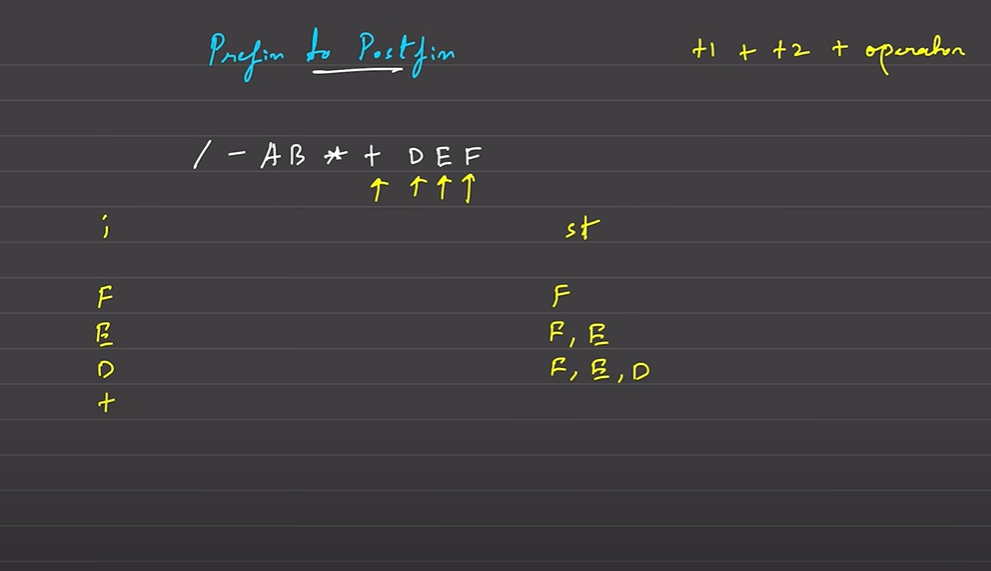 Prefix to Postfix
t1 + t2 + operator
/ - A B * + D E F
↑ ↑ ↑ ↑
i st
F F
E F, E
D F, E, D
+